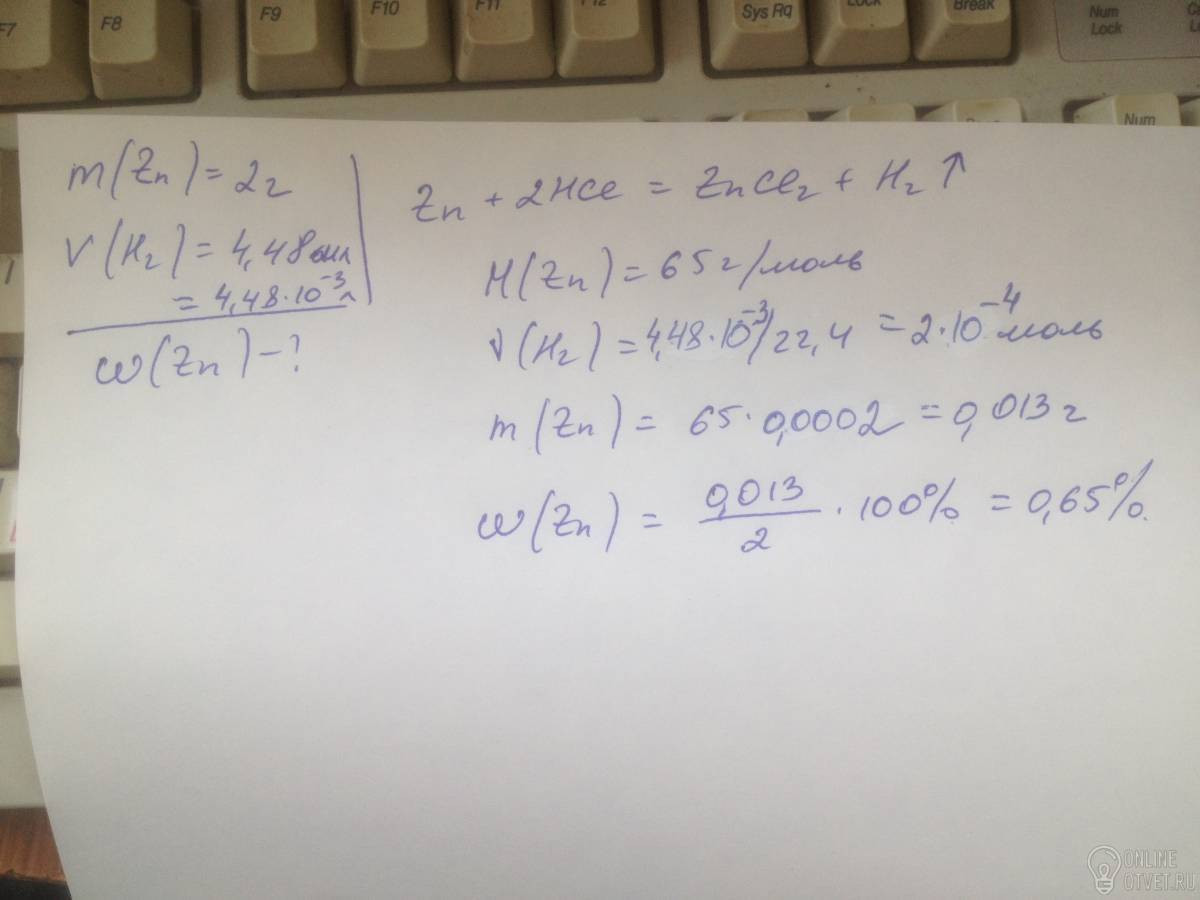 F7 F8 F9 F10 F11 F12 Sys Rq Lock Break Num Lock
Num
m(Zn) = 2г
V(H₂) = 4,48 мл
= 4,48·10⁻³ л
ω(Zn) – ?
Zn + 2HCl = ZnCl₂ + H₂↑
M(Zn) = 65 г/моль
ν(H₂) = 4,48·10⁻³/22,4 = 2·10⁻⁴ моль
m(Zn) = 65·0,0002 = 0,013 г
ω(Zn) = 0,013/2 · 100% = 0,65%.
ONLINE
OTVET.RU